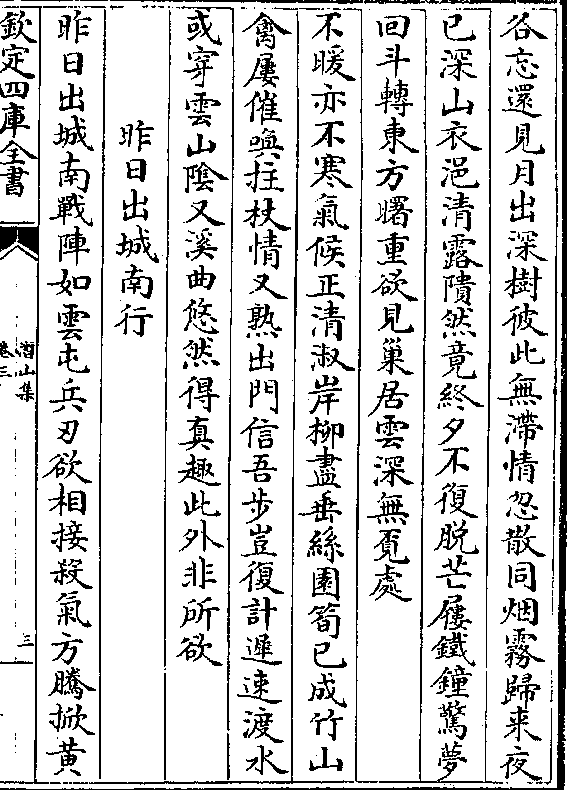 各忘還見月出深樹彼此無滯情忽散同烟霧歸来夜
已深山衣浥清露隤然竟終夕不復脱芒屨鐵鐘驚夢
回斗轉東方曙重欲見巢居雲深無覔處
不暖亦不寒氣候正清淑岸柳盡垂絲園筍已成竹山
禽屢催喚拄杖情又熟出門信吾步豈復計遲速渡水
或穿雲山陰又溪曲悠然得真趣此外非所欲
昨日出城南行
昨日出城南戰陣如雲屯兵刃欲相接殺氣方騰掀黄
欽定四庫全書
潛山集
卷三
三